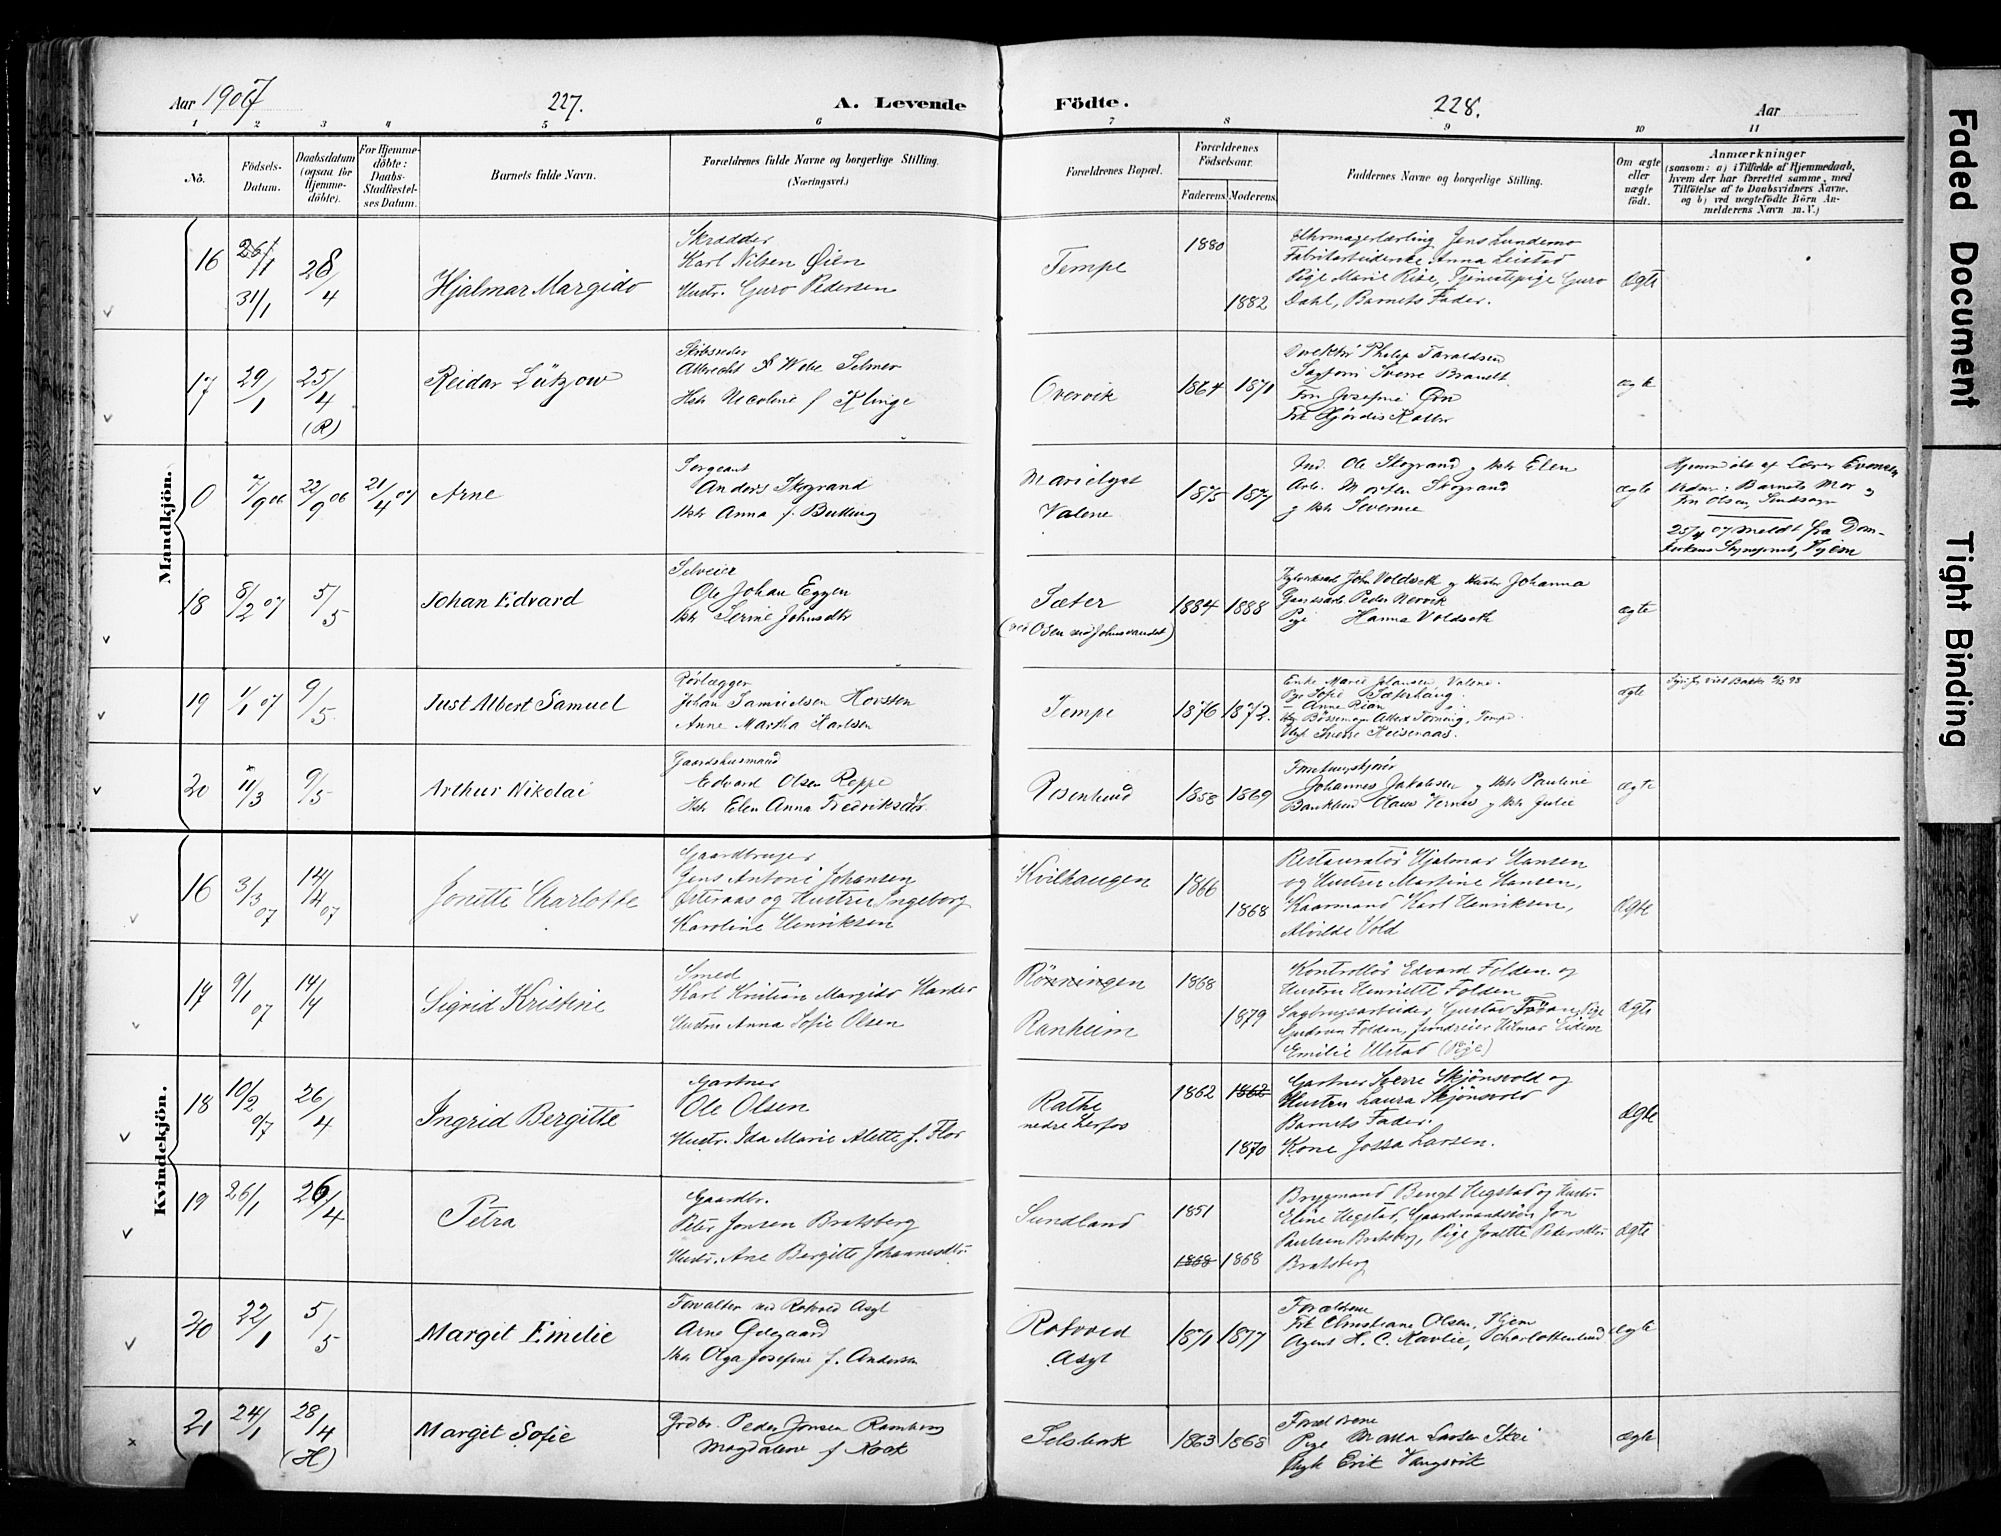 Aar 1907
227.
A. Levende
Födte.
228.
Aar
1 2 3 4 5 6 7 8 9 10 11
No.
Födsels-Datum.
Daabsdatum (ogsaa for Hjemme-döbte).
For Hjemme-döbte: Daabs-Stadfæstel-ses Datum.
Barnets fulde Navn.
Forældrenes fulde Navne og borgerlige Stilling. (Næringsvei.)
Forældrenes Bopæl.
Forældrenes Födselsaar.
Faderens. Moderens.
Faddernes Navne og borgerlige Stilling.
Om ægte eller uægte födt.
Anmærkninger
(saasom: a) i Tilfælde af Hjemmedaab,
hvem der har forrettet samme, med
Tilföielse af to Daabsvidners Navne.
og b) ved uægtefödte Börn An-
melderens Navn m. V.)
Mandkjön.
16 31/1 28/4 Hjalmar Margido
Skrædder
Karl Nilsen Øien
Hustr. Guro Pedersen
Tempe
1880
1882
Jens Lundemo
Anna Leistad
Pige Marie Rise, Tjenestepige Guro
Dahl, Barnets Fader.
Ægte
17 29/1 25/4 (R) Reidar Lützow
Skibsreder
Albrecht Selmer
Hstr Nicoline f Klinge
Overvik
1864 1871
Direktör Philip Taraldsen
Sagförer Sverre Brandt
Fru Josefine
Frk Hjördis
ægte
0 7/9 06 22/9 06 21/4 07 Arne
Sergeant
Anders Skogrand
Hstr Anna f.
Marielyst
Valene
1875 1877
Ind. Ole Skogrand og Hstr Elen
Arb. Morten Skogrand
og Hstr Severine
ægte
Hjemmedöbt af Lærer Evensen
Vidner: Barnets Mor og
Fru Olsen,
25/4 07 meldt fra Dom-
kirkens Sogneprest, Tjem
18 8/2 07 5/5 Johan Edvard
Selveier
Ole Johan Eggen
Hstr Serine Johnsdtr
Sæter
(ved Osen ved Johnsvandet)
1884 1888
John Voldseth og Hustr Johanna
Peder Nervik
Pige Hanna Voldseth
ægte
19 1/1 07 9/5 Just Albert Samuel
Rörlægger
Johan Samuelsen Hovsten
Anne Martha Karlsen
Tempe
1876 1872.
Enke Marie Johansen, Valene.
Pige Sofie Sæterhaug.
— Anne Rian
Albert Torning, Tempe.
Sverre Reisenaas.
ægte
20 11/3 9/5 Arthur Nikolai
Gaardshusmand
Edvard Olsen Reppe
Hstr Elen Anna Fredriksdtr.
Rosenlund
1858 1869
Johannes Jakobsen og Hstr Pauline
Olaus Vernes og Hstr Julie
ægte
Kvindekjön.
16 3/3 07 14/4 07 Jonette Charlotte
Gaardbruger
Jens Antoni Johansen
Østeraas og Hustru Ingeborg
Karoline Henriksen
Kvilhaugen
1866
1868
Restauratör Hjalmar Hansen
og Hustru Martine Hansen,
Kaarmand Karl Henriksen,
Alvilde Vold
Ægte
17 9/1 07 14/4 Sigrid Kristine
Smed
Karl Kristian Margido Harder
Hustru Anna Sofie Olsen
Rönningen
Ranheim
1868
1879
Kontrollör Edvard Folden og
Hustru Henriette Folden
Sagbrugsarbeider, Gustav
Gudrun Folden, Jordeier Hilmar Eidem
Emilie Ulstad (Pige)
Ægte
18 10/2 07 26/4 Ingrid Bergitte
Gartner
Ole Olsen
Hustr. Ida Marie Alette f. Flor
Rathe
nedre Lerfos
1862 1862
1870
Gartner Sverre Skjönsvold og
Hustru Laura Skjönsvold
Barnets Fader.
Kone Jossa Larsen.
Ægte
19 26/1 26/4 Petra
Gaardbr.
Peter Jonsen Bratsberg
Hustr. Ane Bergitte Johannesdtr.
Sundland
1851
1868 1868
Bryggmand Bengt Hegstad og Hustr.
Eline Hegstad, Gaardmandssön Jon
Paulsen Bratsberg, Pige Jonette Petersdtr.
Bratsberg
Ægte
20 22/1 5/5 Margit Emilie
Forvalter ved Rotvold Asyl
Arne Ødegaard
Hstr Olga Josefine f. Andersen
Rotvold
Asyl
1871 1877
Forældrene
Frk Christiane Olsen, Hjem
Agent H. C. Havlie, Charlottenlund
Ægte
21 24/1 28/4 (H) Margit Sofie
Grdbr. Peder Jonsen Ramberg
Magdalene f
Selsbak
1863 1865
Forældrene
Pige Larsen Skei
Erik Vangsvik
ægte
Faded Document
Tight Binding